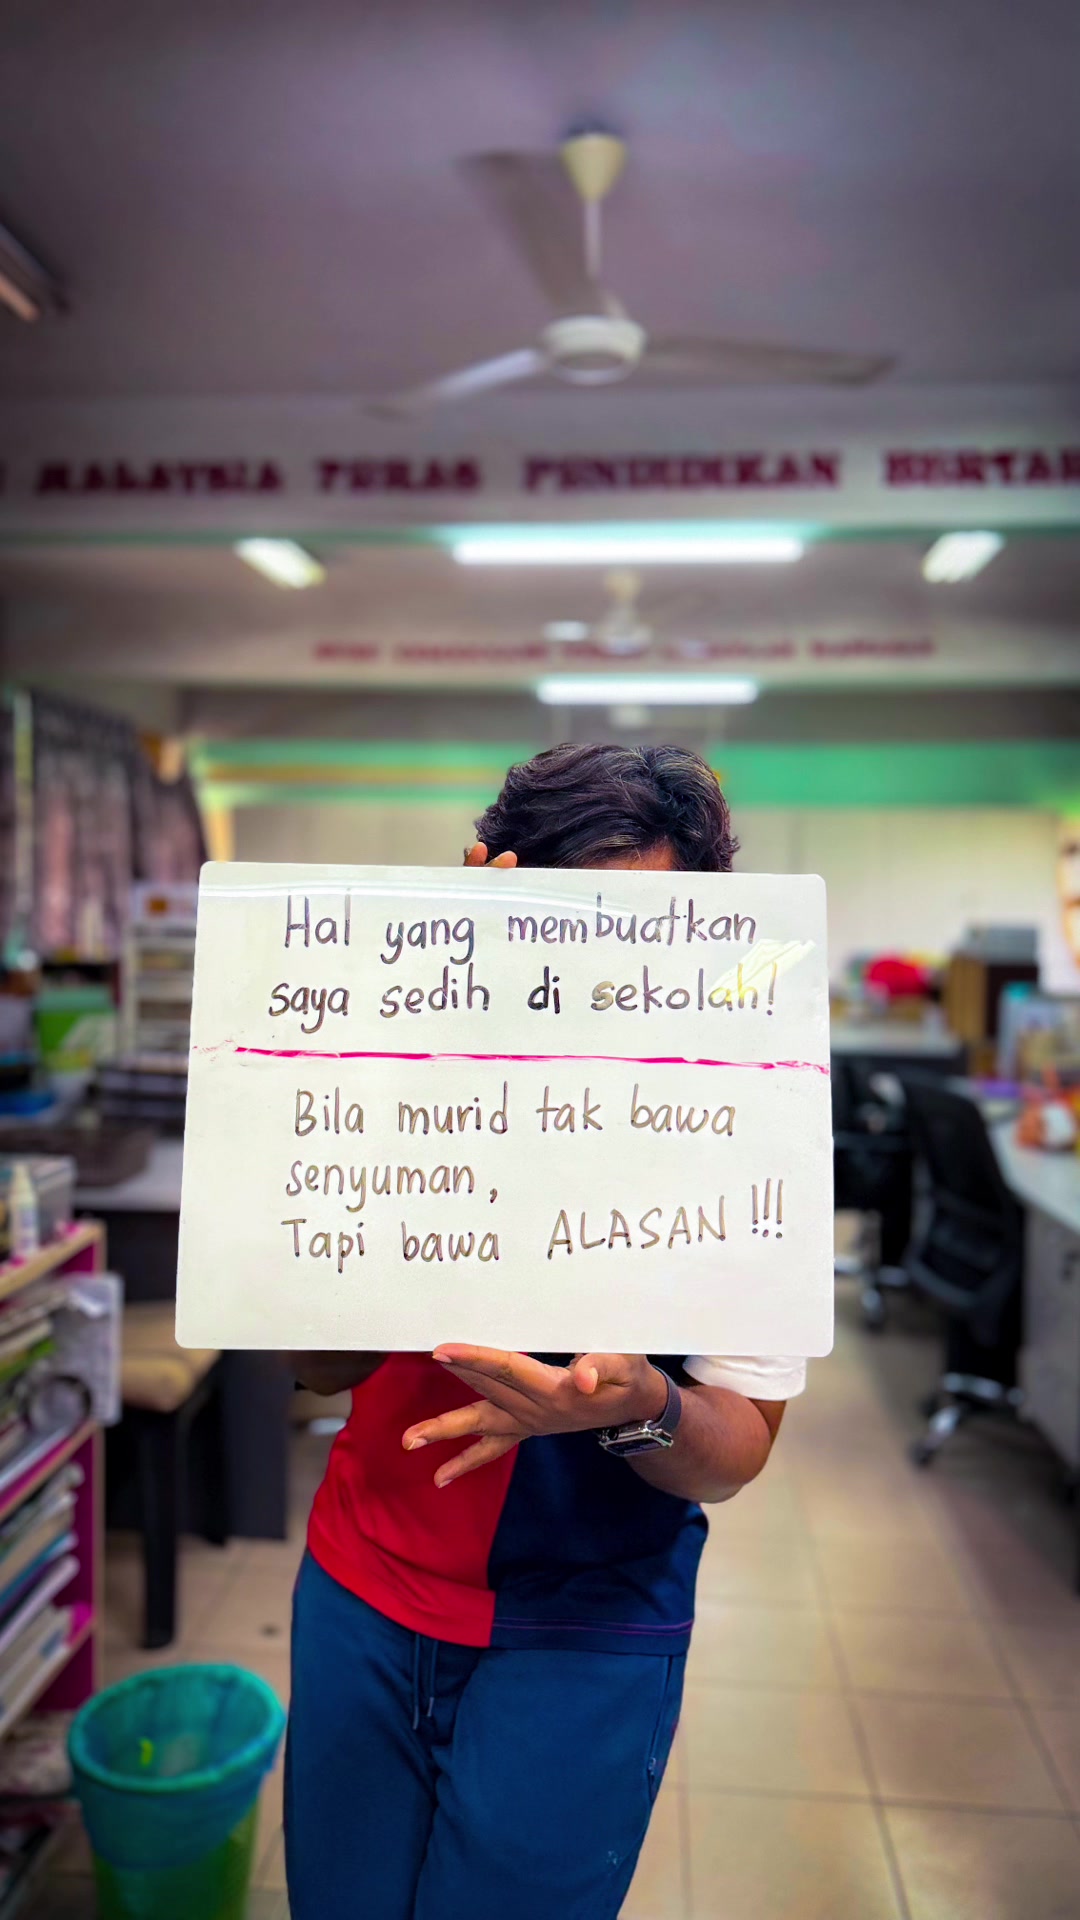 MALAYSIA TERAS PENDIDIKAN
Hal yang membuatkan
saya sedih di sekolah!
Bila murid tak bawa
senyuman,
Tapi bawa ALASAN !!!